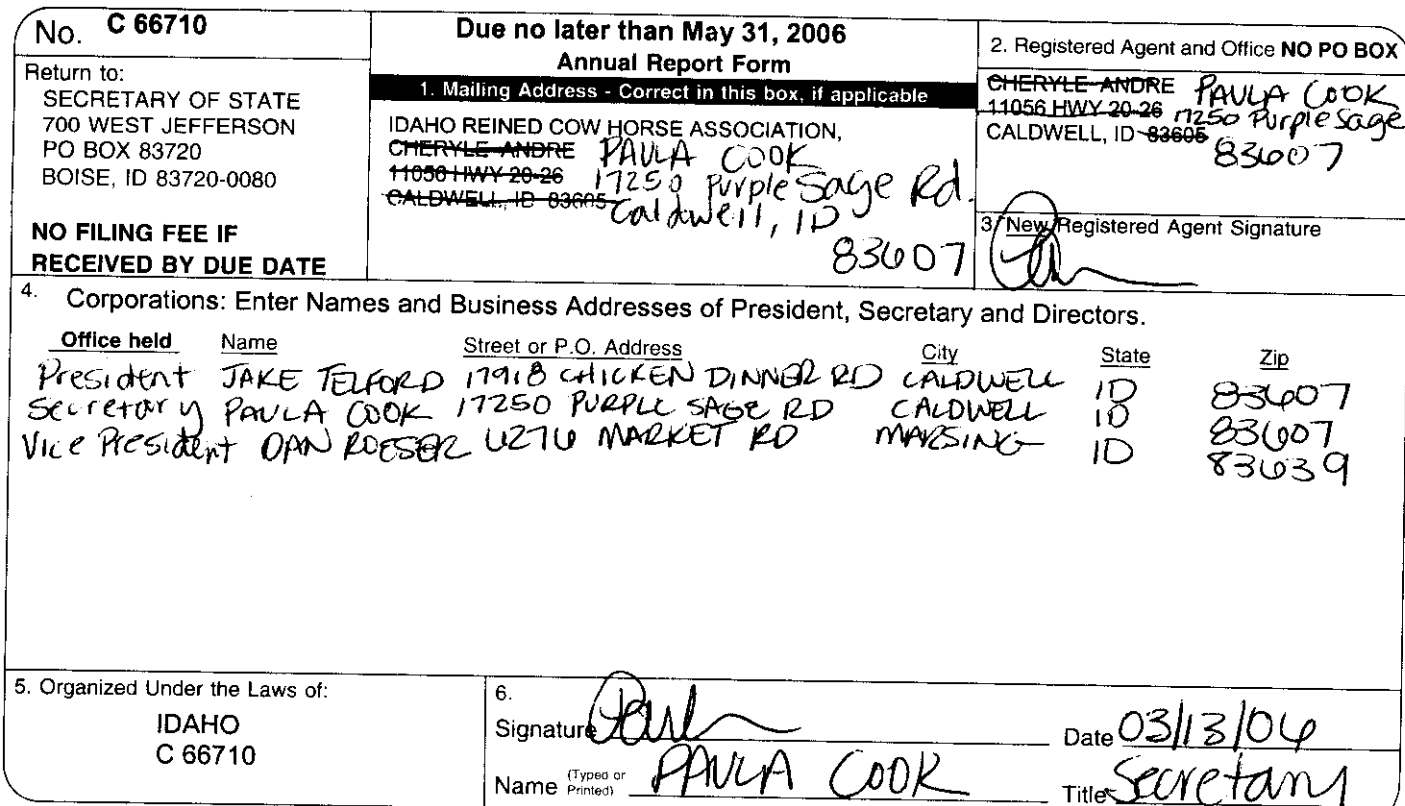 No. C 66710
Return to:
SECRETARY OF STATE
700 WEST JEFFERSON
PO BOX 83720
BOISE, ID 83720-0080
NO FILING FEE IF
RECEIVED BY DUE DATE
Due no later than May 31, 2006
Annual Report Form
1. Mailing Address - Correct in this box, if applicable
IDAHO REINED COW HORSE ASSOCIATION,
CHERYLE ANDRE PAULA COOK
11056 HWY 20-26 17250 Purple Sage Rd.
CALDWELL, ID 83605 Caldwell, ID
83607
2. Registered Agent and Office NO PO BOX
CHERYLE ANDRE PAULA COOK
11056 HWY 20-26 17250 Purple Sage
CALDWELL, ID 83605
83607
3. New Registered Agent Signature
4. Corporations: Enter Names and Business Addresses of President, Secretary and Directors.
Office held Name Street or P.O. Address City State Zip
President JAKE TELFORD 17918 CHICKEN DINNER RD CALDWELL ID 83607
Secretary PAULA COOK 17250 PURPLE SAGE RD CALDWELL ID 83607
Vice President DAN ROESER 6276 MARKET RD MARSING ID 83639
5. Organized Under the Laws of:
IDAHO
C 66710
6.
Signature Date 03/13/06
Name (Typed or Printed) PAULA COOK Title Secretary